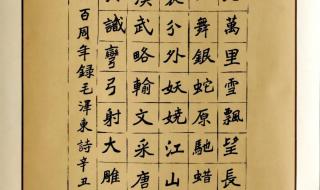 萬里雪飄望長
舞銀蛇原馳蜡
裹分外妖嬈江山
漢武略輸文采唐
識彎弓射大雕
百周年録毛澤東詩辛丑